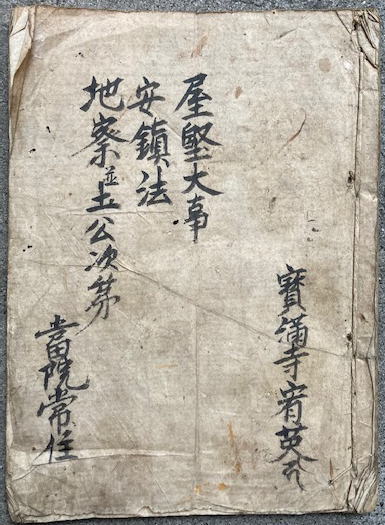 寳滿寺宥英
屋堅大事
安鎮法
地祭並土公次苐
當院常住